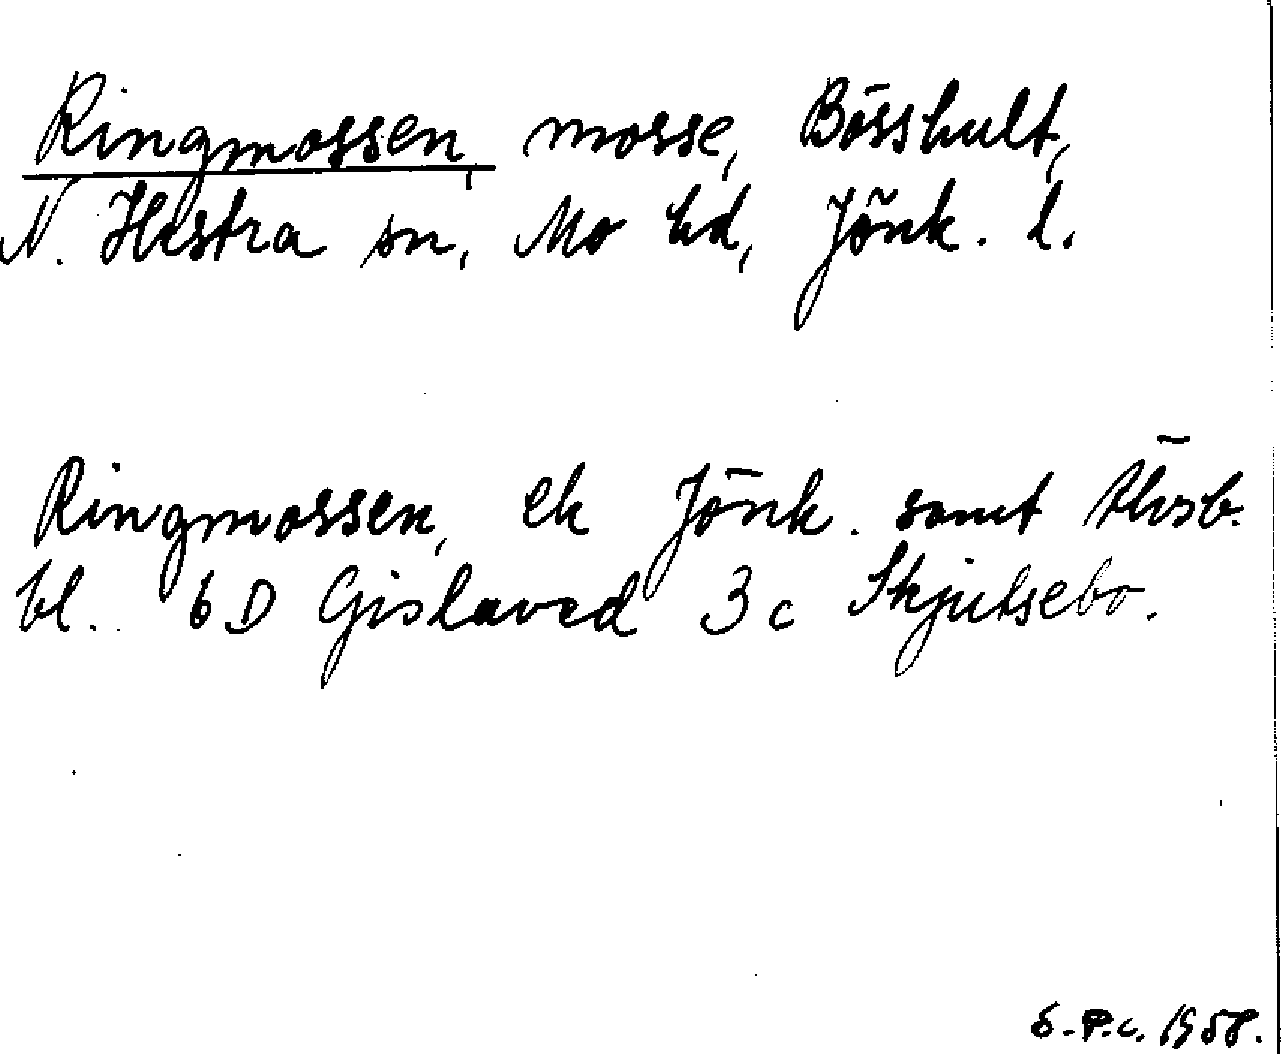 Ringmossen, mosse, Bösshult,
N. Hestra sn, Mo hd, Jönk. l.
Ringmossen, ek Jönk. samt Älvsb.
bl. 6D Gislaved 3c Skjutsebo.
S.P.c. 1958.